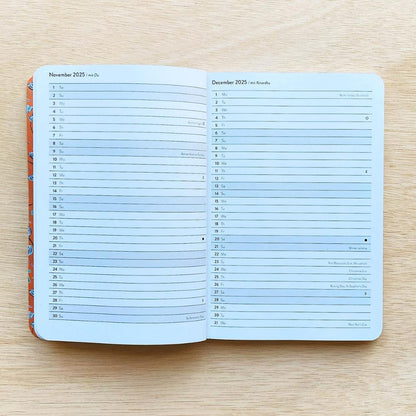 November 2025
1 Sa
2 Su
3 Mo
4 Tu
5 We
6 Th
7 Fr
8 Sa
9 Su
10 Mo
11 Tu
12 We
13 Th
14 Fr
15 Sa
16 Su
17 Mo
18 Tu
19 We
20 Th
21 Fr
22 Sa
23 Su
24 Mo
25 Tu
26 We
27 Th
28 Fr
29 Sa
30 Su St Andrew's Day
December 2025
1 Mo
2 Tu
3 We
4 Th
5 Fr
6 Sa
7 Su
8 Mo
9 Tu
10 We
11 Th
12 Fr
13 Sa
14 Su
15 Mo
16 Tu
17 We
18 Th
19 Fr
20 Sa
21 Su
22 Mo
23 Tu
24 We Christmas Eve
25 Th Christmas Day
26 Fr Boxing Day, St Stephen's Day
27 Sa
28 Su
29 Mo
30 Tu
31 We New Year's Eve